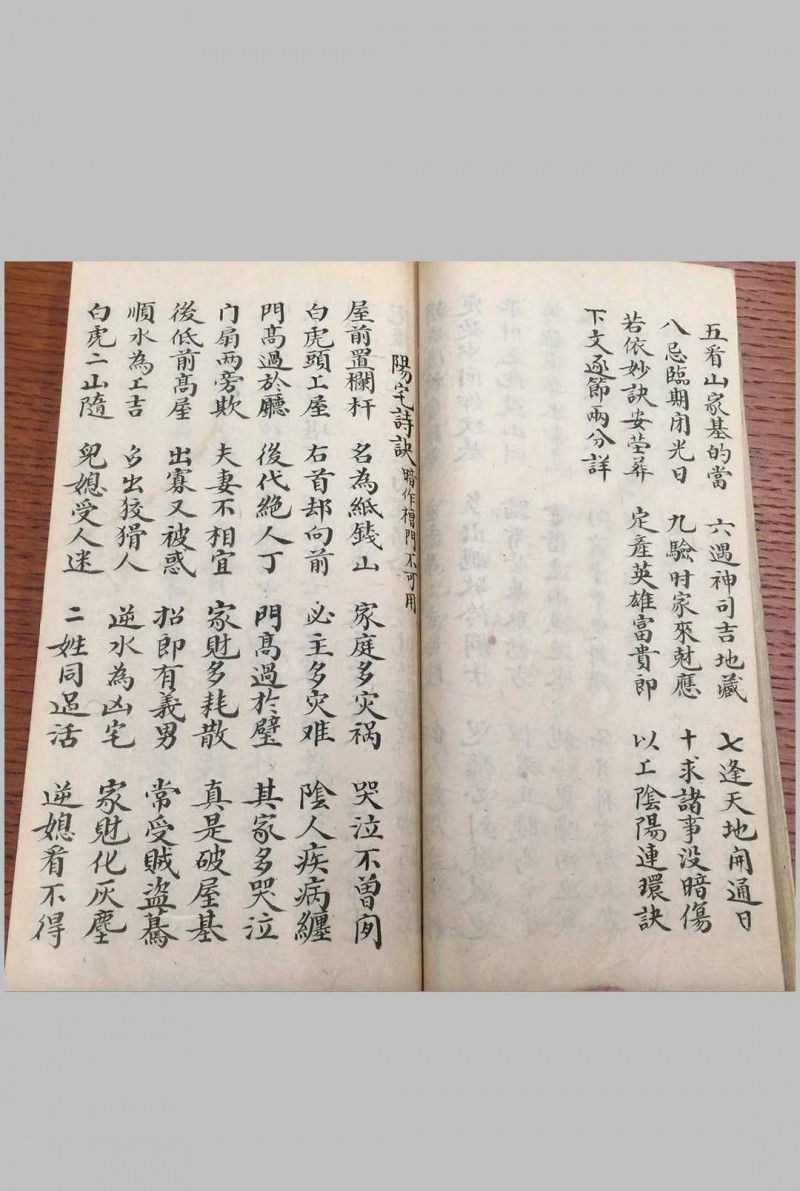 五看山家基的當　六遇神司吉地藏　七逢天地開通日
八忌臨期閉光日　九驗时家來尅應　十求諸事没暗傷
若依妙訣安塋葬　定產英雄富貴郎　以工陰陽連環訣
下文逐節兩分詳
陽宅詩訣 暗作槽門不可用
屋前置欄杆　名為紙錢山　家庭多灾祸　哭泣不曾
白虎頭工屋　右首却向前　必主多灾难　陰人疾病纏
門髙過於廳　後代絶人丁　門髙過於壁　其家多哭泣
门扇两旁欺　夫妻不相宜　家財多耗散　真是破屋基
後低前髙屋　出寡又被惑　招郎有義男　常受賊盗驀
順水為工吉　出狡猾人　逆水為凶宅　家財化灰塵
白虎二山隨　兒媳受人迷　二姓同過活　逆媳看不得